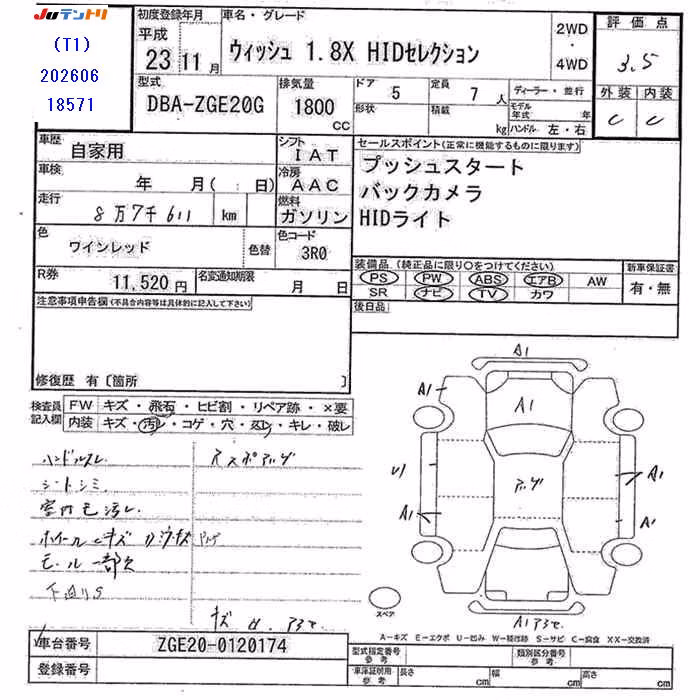 JUテントリ
(T1)
202606
18571
初度登録年月
平成
23 11 月
車名・グレード
ウィッシュ 1.8X HIDセレクション
2WD
・
4WD
評価点
3.5
外装 内装
C C
型式
DBA-ZGE20G
排気量
1800
CC
ドア 5
形状
定員 7 人
積載 kg
ディーラー・並行
モデル年式 年
ハンドル 左・右
車歴
自家用
シフト
IAT
車検
年 月( : 日)
冷房
AAC
走行
8万7千611 km
燃料
ガソリン
色
ワインレッド
色替
色コード
3R0
R券
11,520 円
名変通知期限
月 日
セールスポイント(正常に機能するものに限ります)
プッシュスタート
バックカメラ
HIDライト
装備品 (純正品に限り○をつけてください)
PS PW ABS エアB AW
SR ナビ TV カワ
新車保証書
有・無
後日品
注意事項申告欄(不具合内容等は具体的に記入して下さい)
修復歴 有〔箇所 〕
検査員記入欄
FW キズ・飛石・ヒビ割・リペア跡・×要
内装 キズ・汚れ・コゲ・穴・スレ・キレ・破レ
ハンドルスレ
シートシミ
室内モ汚レ
モール一部欠
下廻りS
A1
A1
A1
A1
A1
A1
U1
スペア
A-キズ E-エクボ U-凹み W-補修跡 S-サビ C-腐食 XX-交換済
車台番号 ZGE20-0120174
登録番号
型式指定番号
参考
類別区分番号
参考
車庫証明用
参考
長さ cm
幅 cm
高さ cm